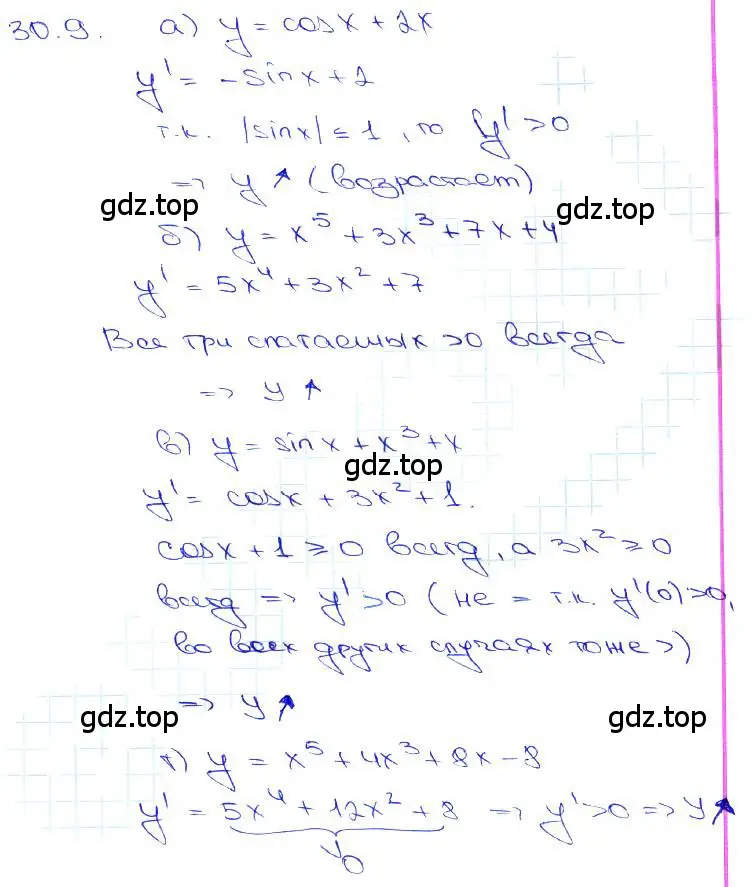 30.9. а) y = cosx + 2x
y' = -sinx + 2
т.к. |sinx| ≤ 1, то y' > 0
=> y ↑ (возрастает)
gdz.top gdz.top
б) y = x⁵ + 3x³ + 7x + 4
y' = 5x⁴ + 3x² + 7
Все три слагаемых >0 всегда
=> y ↑
в) y = sinx + x³ + x
gdz.top
y' = cosx + 3x² + 1.
cosx + 1 ≥ 0 всегд, а 3x² ≥ 0
всегд => y' > 0 (не = т.к. y'(0) > 0,
во всех других случаях тоже >)
=> y ↑
gdz.top gdz.top
г) y = x⁵ + 4x³ + 8x - 8
y' = 5x⁴ + 12x² + 8 => y' > 0 => y ↑
∨
0